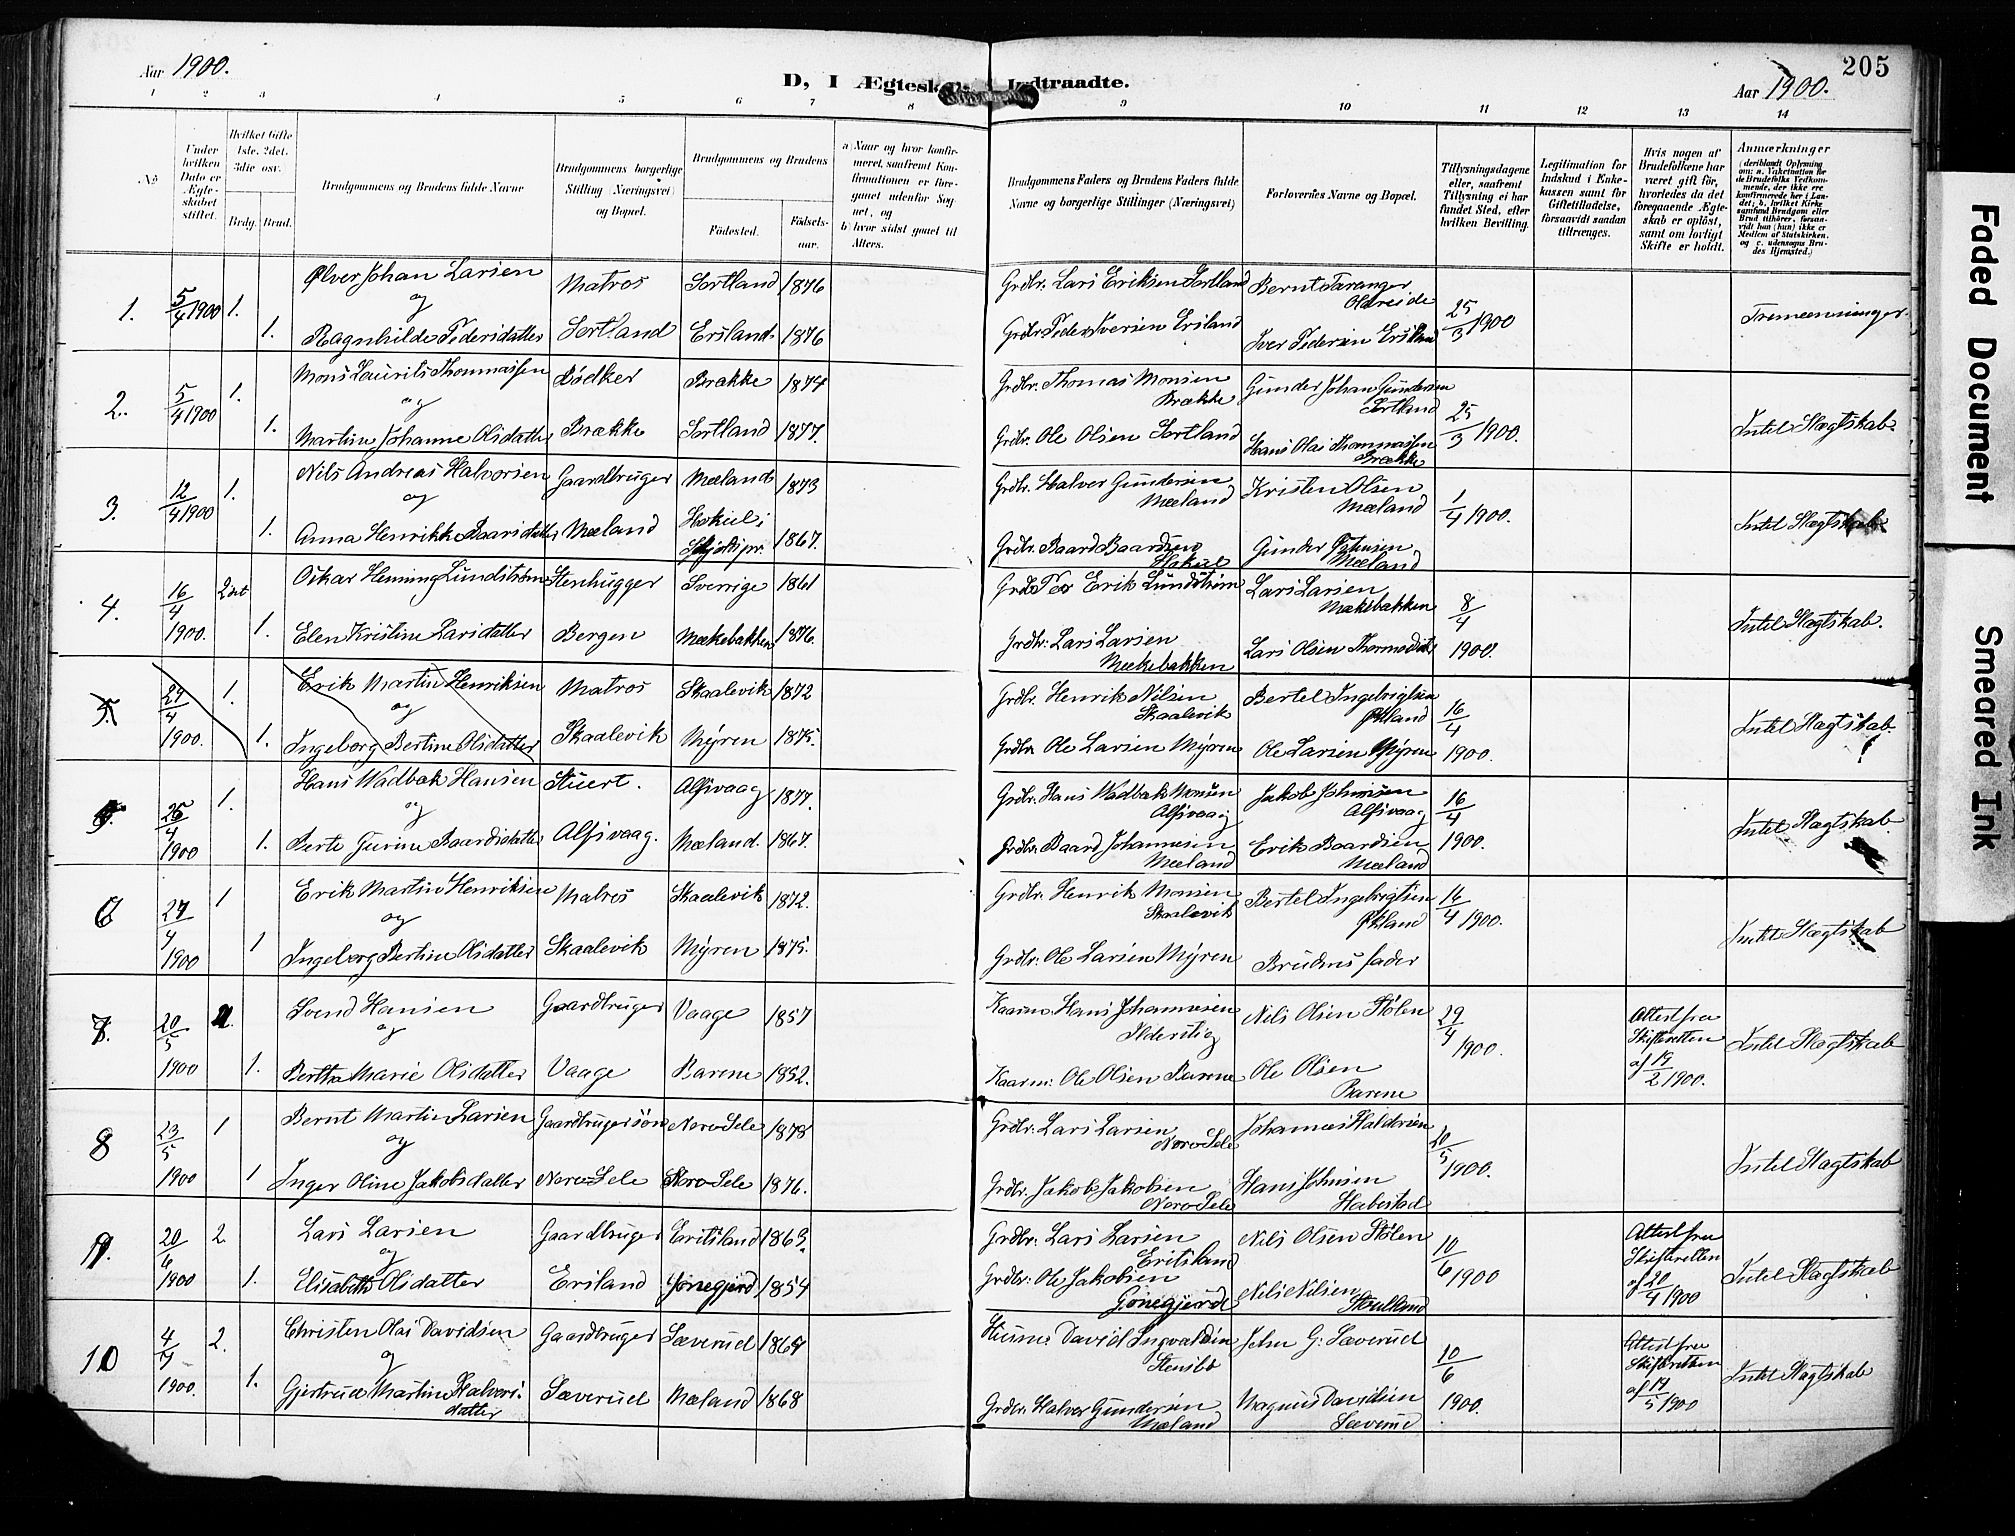 205
Aar 1900.
D, I Ægteskab Indtraadte.
Aar 1900.
1 2 3 4 5 6 7 8 9 10 11 12 13 14
No
Under hvilken Dato er Ægteskabet stiftet.
Hvilket Gifte 1ste, 2det, 3die osv.
Brdg. Brud.
Brudgommens og Brudens fulde Navne
Brudgommens borgerlige Stilling (Næringsvei) og Bopæl.
Brudgommens og Brudens
Fødested.
Fødselsaar.
a) Naar og hvor konfirmeret, saafremt Konfirmationen er foregaaet udenfor Sognet, og
b) hvor sidst gaaet til Alters.
Brudgommens Faders og Brudens Faders fulde Navne og borgerlige Stillinger (Næringsvei)
Forlovernes Navne og Bopæl.
Tillysningsdagene eller, saafremt Tillysning ei har fundet Sted, efter hvilken Bevilling.
Legitimation for Indskud i Enkekassen samt for Giftetilladelse, forsaavidt saadan tiltrænges.
Hvis nogen af Brudefolkene har været gift før, hvorledes da det foregaaende Ægteskab er opløst, samt om lovligt Skifte er holdt.
Anmærkninger
(deriblandt Oplysning om: a. Vakcination for de Brudefolks Vedkommende, der ikke ere konfirmerede her i Landet; b. hvilket Kirkesamfund Brudgom eller Brud tilhører, forsaavidt han (hun) ikke er Medlem af Statskirken, og c. udensogns Brudes Hjemsted.)
1. 5/4 1900 1. Ølver Johan Larsen Matros Sortland 1876 Grdbr. Lars Eriksen Sortland Bernt Taranger Oldreide 25/3 1900 Tremenninger.
og
1. Ragnhilde Pedersdatter Sortland Ersland 1876 Grdbr. Peder Iversen Ersland Iver Pedersen Ersland
2. 5/4 1900 1. Mons Laurits Thommassen Bødker Brække 1874 Grdbr. Thomas Monsen Brække Gunder Johan Gundersen Sortland 25/3 1900. Intet Slægtskab.
og
1. Martine Johanne Olsdatter Brække Sortland 1877. Grdbr. Ole Olsen Sortland Hans Olai Thommassen Brække
3. 12/4 1900 1. Nils Andreas Halvorsen Gaardbruger Mæland 1873 Grdbr. Halvor Gundersen Mæland Kristen Olsen Mæland 1/4 1900. Intet Slægtskab
og
1. Anna Henrikke Baarsdatter Mæland 1867. Grdbr. Baard Baardsen Gunder Johnsen Mæland
4. 16/4 1900. 2det Oskar Henning Lundstrøm Stenhugger Sverrige 1861 Per Erik Lundstrøm Lars Larsen Mækebakken 8/4 1900. Intet Slægtskab.
1. Elen Kristine Larsdatter Bergen Mækebakken 1876. Grdbr. Lars Larsen Mækebakken Lars Olsen
5. 27/4 1900. 1. Erik Martin Henriksen Matros Skaalevik 1872 Grdbr. Henrik Nilsen Skaalevik Bertel Ingebrigtsen Økland 16/4 1900. Intet Slægtskab.
og
1. Ingeborg Bertine Olsdatter Skaalevik Myren 1875. Grdbr. Ole Larsen Myren Ole Larsen Myren
5. 26/4 1900 1. Hans Wadbak Hansen Stuert. Alfsvaag 1877. Grdbr. Hans Wadbak Monsen Alfsvaag Jakob Johnsen Alfsvaag 16/4 1900. Intet Slægtskab.
og
1. Berte Gurine Baardsdatter Alfsvaag. Mæland. 1867. Grdbr. Baard Johannesen Mæland Erik Baardsen Mæland
6 27/4 1900 1 Erik Martin Henriksen Matros Skaalevik 1872. Grdbr. Henrik Monsen Skaalevik Bertel Ingebrigtsen Økland 16/4 1900. Intet Slægtskab
og
1 Ingeborg Bertine Olsdatter Skaalevik Myren 1875. Grdbr. Ole Larsen Myren Brudens fader
7. 20/5 1900 2. Svend Hansen Gaardbruger Vaage 1857 Kaarm. Hans Johannesen Nils Olsen Stølen 29/4 1900. Attest fra Skifteretten af 19/2 1900. Intet Slægtskab
og
1. Bertha Marie Olsdatter Vaage Barene 1852. Kaarm. Ole Olsen Barene Ole Olsen Barene
8 23/5 1900 1 Bernt Martin Larsen Gaardbrugersøn Nore Sele 1878 Grdbr. Lars Larsen Nore Sele Johannes Haldorsen 20/5 1900. Intet Slægtskab
og
1 Inger Oline Jakobsdatter Nore Sele Store Sele 1876. Grdbr. Jakob Jakobsen Nore Sele Hans Johnsen Habestad
9. 20/6 1900 2. Lars Larsen Gaardbruger Eritsland 1863. Grdbr. Lars Larsen Eritsland Nils Olsen Stølen 10/6 1900 Attest fra Skifteretten af 20/4 1900 Intet Slægtskab
og
1. Elisabeth Olsdatter Ersland Gønegjerd 1854 Grdbr. Ole Jakobsen Gønegjerde Nils Nilsen
10 4/7 1900. 2. Christen Olai Davidsen Gaardbruger Sæverud 1869 Husm. David Ingvaldsen Stensbø John G. Sæverud 10/6 1900. Attest fra Skifteretten af 19/5 1900 Intet Slægtskab
og
1. Gjertrud Martine Halvorsdatter Sæverud Mæland 1868 Grdbr. Halvor Gundersen Mæland Magnus Davidsen Sæverud
Faded Document
Smeared Ink